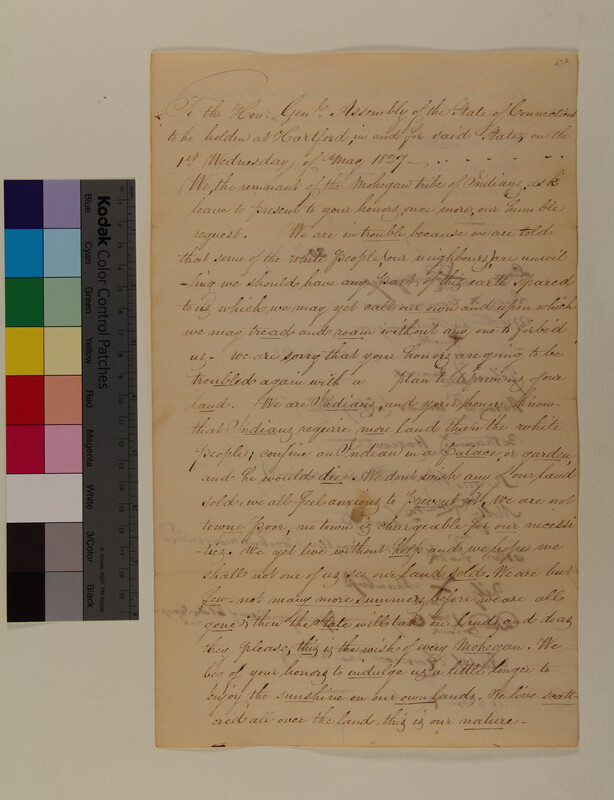 To the Hon. Genl. Assembly of the State of Connecticut
to be holden at Hartford, in and for said State, on the
1st Wednesday of May 1827
We, the remnant of the Mohegan tribe of Indians, ask
leave to present to your honors, once more, our humble
request. We are in trouble because we are told
that some of the white people, our neighbours, are unwil
-ling we should have any part of this earth spared
to us, which we may yet call our own and upon which
we may tread and roam without any one to forbid
us- We are sorry that your honors are going to be
troubled again with a plan to deprive us of our
land. We are Indians, and your honors know
that Indians require more land than the white
people; confine an Indian in a Palace, or garden,
and he would die. We dont wish any of our land
sold, we all feel anxious to prevent it, We are not
town Poor, no town is chargeable for our necessi-
ties. We yet live without help and we hope we
shall not one of us see our Land sold. We are but
few- not many more summers before we are all
gone; then the State will take our lands and do as
they please, this is the wish of every Mohegan. We
beg of your honors to indulge us a little longer to
enjoy the sunshine on our own lands. We live scatt-
ered all over the land, this is our nature-
Kodak Color Control Patches
Blue
Cyan
Green
Yellow
Red
Magenta
White
3/Color
Black